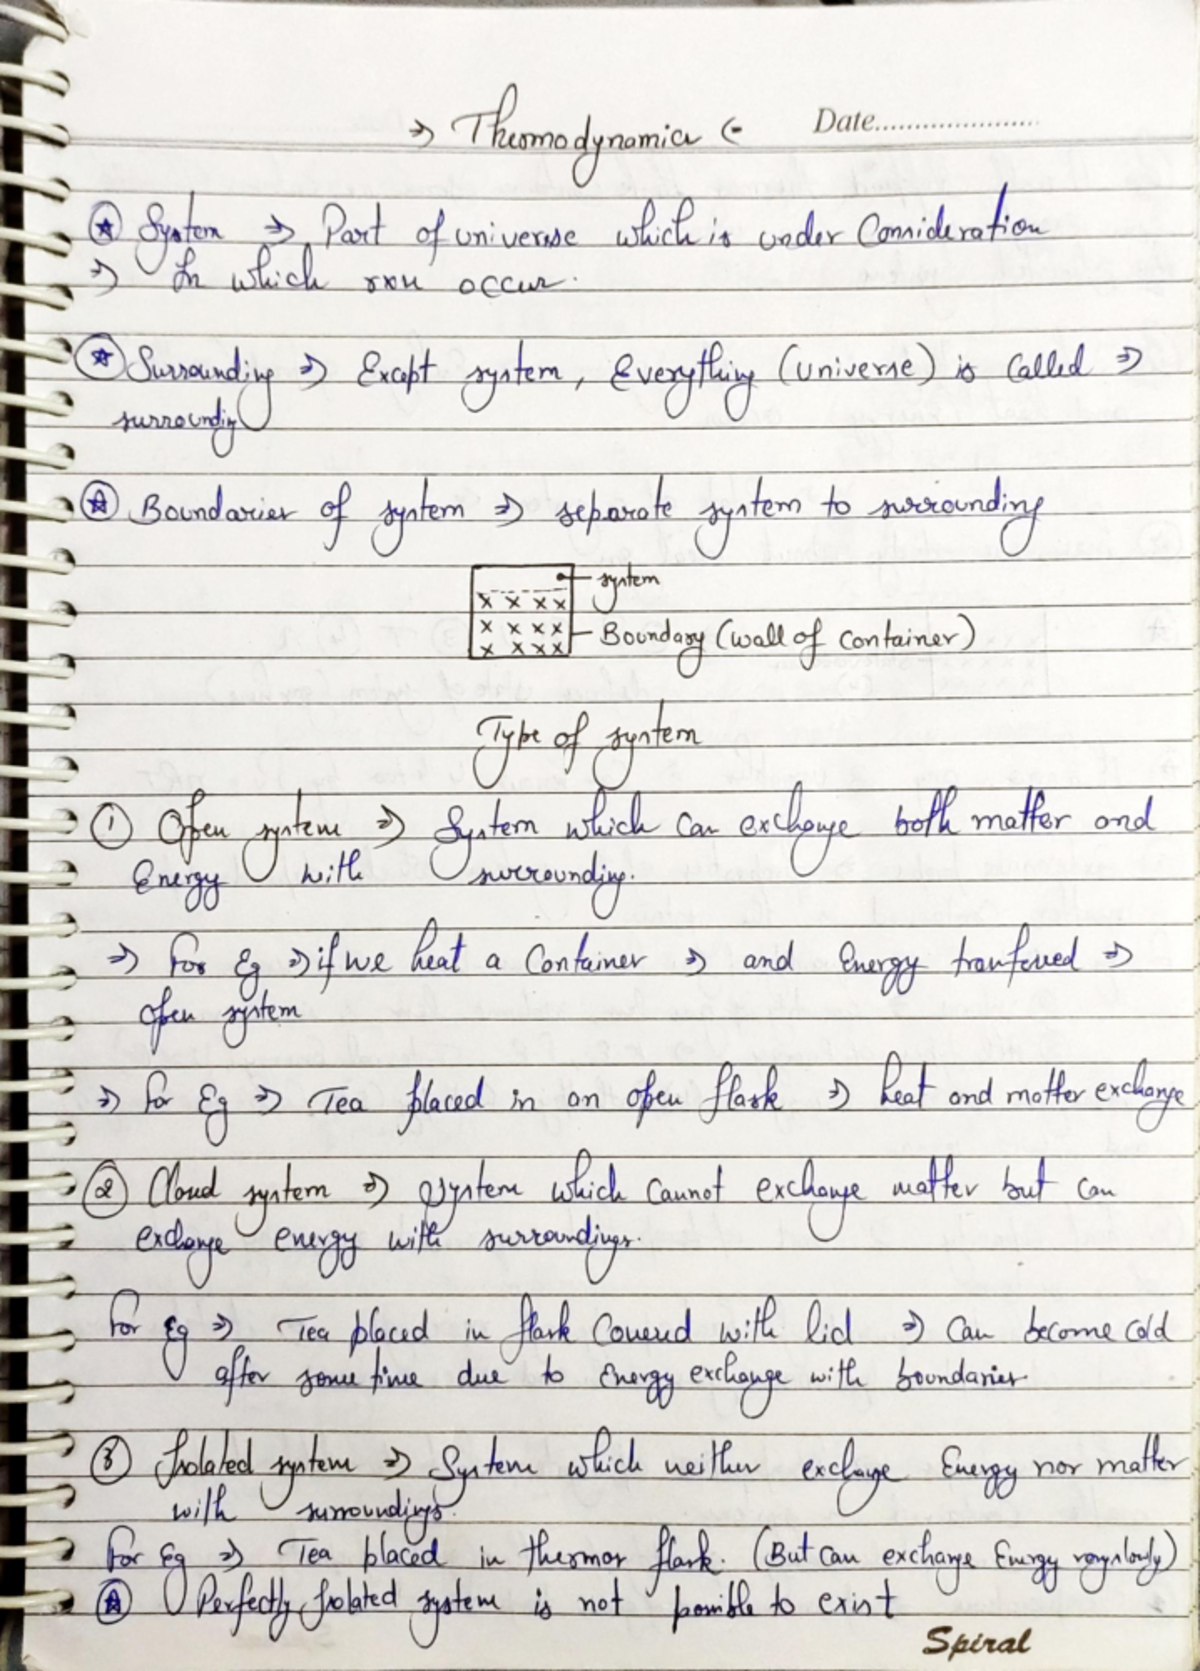 ⇒ Thermodynamics ⇐ Date....................
⍟ System ⇒ Part of universe which is under Consideration
⇒ In which rxn occur.
⍟ Surrounding ⇒ Except system, Everything (universe) is Called ⇒
surrounding
⍟ Boundaries of system ⇒ separate system to surrounding
system
x x x x
x x x x Boundary (wall of container)
x x x x
Type of system
① Open system ⇒ System which can exchange both matter and
Energy with surrounding.
⇒ For Eg ⇒ if we heat a Container ⇒ and Energy tranferred ⇒
open system
⇒ For Eg ⇒ Tea placed in an open flask ⇒ heat and matter exchange
② Closed system ⇒ System which cannot exchange matter but can
exchange energy with surroundings.
For Eg ⇒ Tea placed in flask Covered with lid ⇒ Can become cold
after some time due to Energy exchange with boundaries
③ Isolated system ⇒ System which neither exchange Energy nor matter
with surroundings.
For Eg ⇒ Tea placed in thermos flask. (But can exchange Energy very slowly)
⍟ Perfectly Isolated system is not possible to exist
Spiral